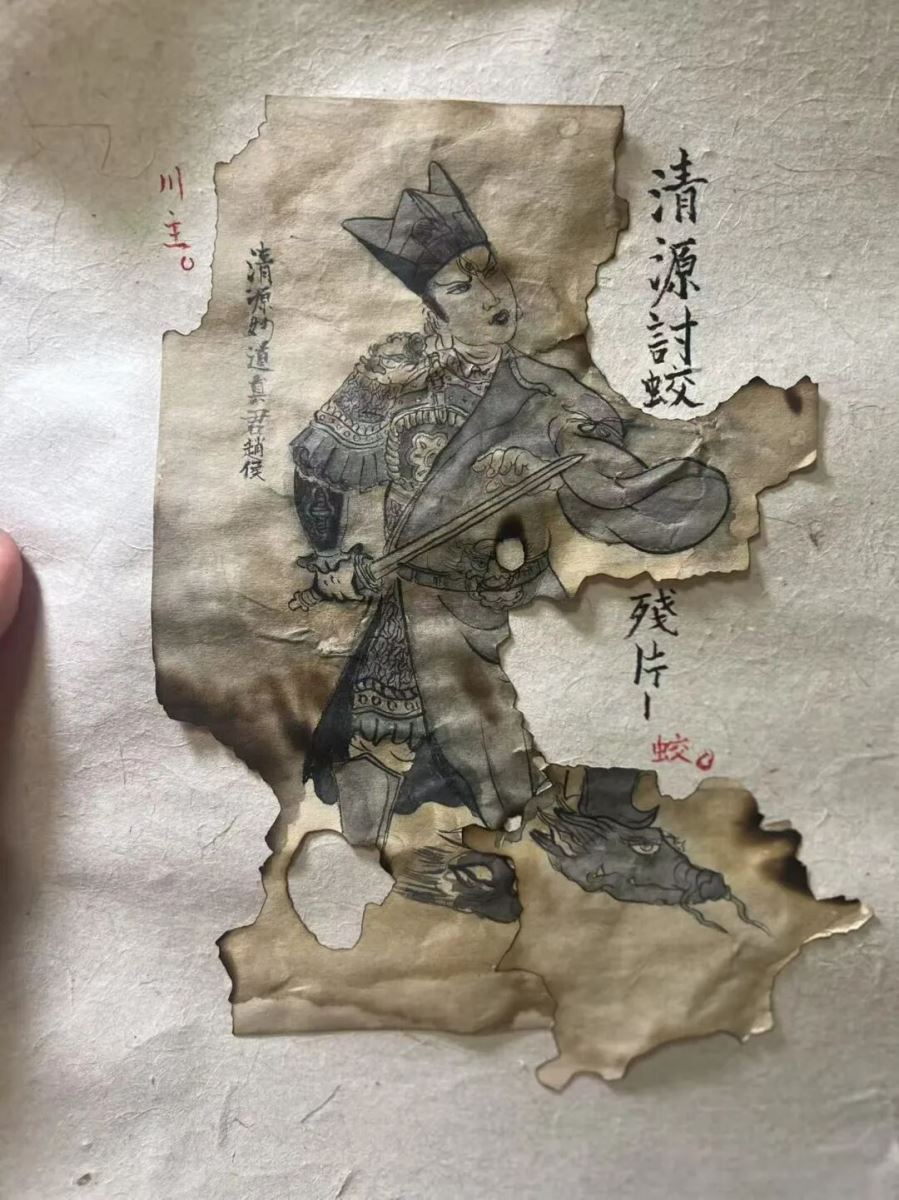 清源討蛟
殘片一
蛟。
清源妙道真君趙侯
川主。